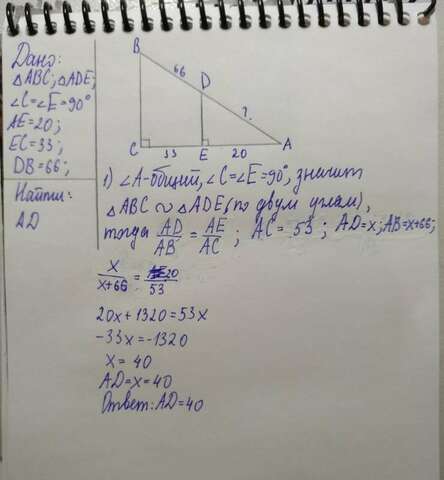 Дано:
△ABC; △ADE;
∠C=∠E=90°
AE=20;
EC=33;
DB=66;
Найти:
AD
B
66
D
?
C
33
E
20
A
1) ∠A-общий, ∠C=∠E=90°, значит
△ABC ∾ △ADE (по двум углам),
тогда AD/AB = AE/AC; AC=53; AD=x; AB=x+66;
x/x+66 = 20/53
20x+1320=53x
-33x=-1320
x=40
AD=x=40
Ответ: AD=40